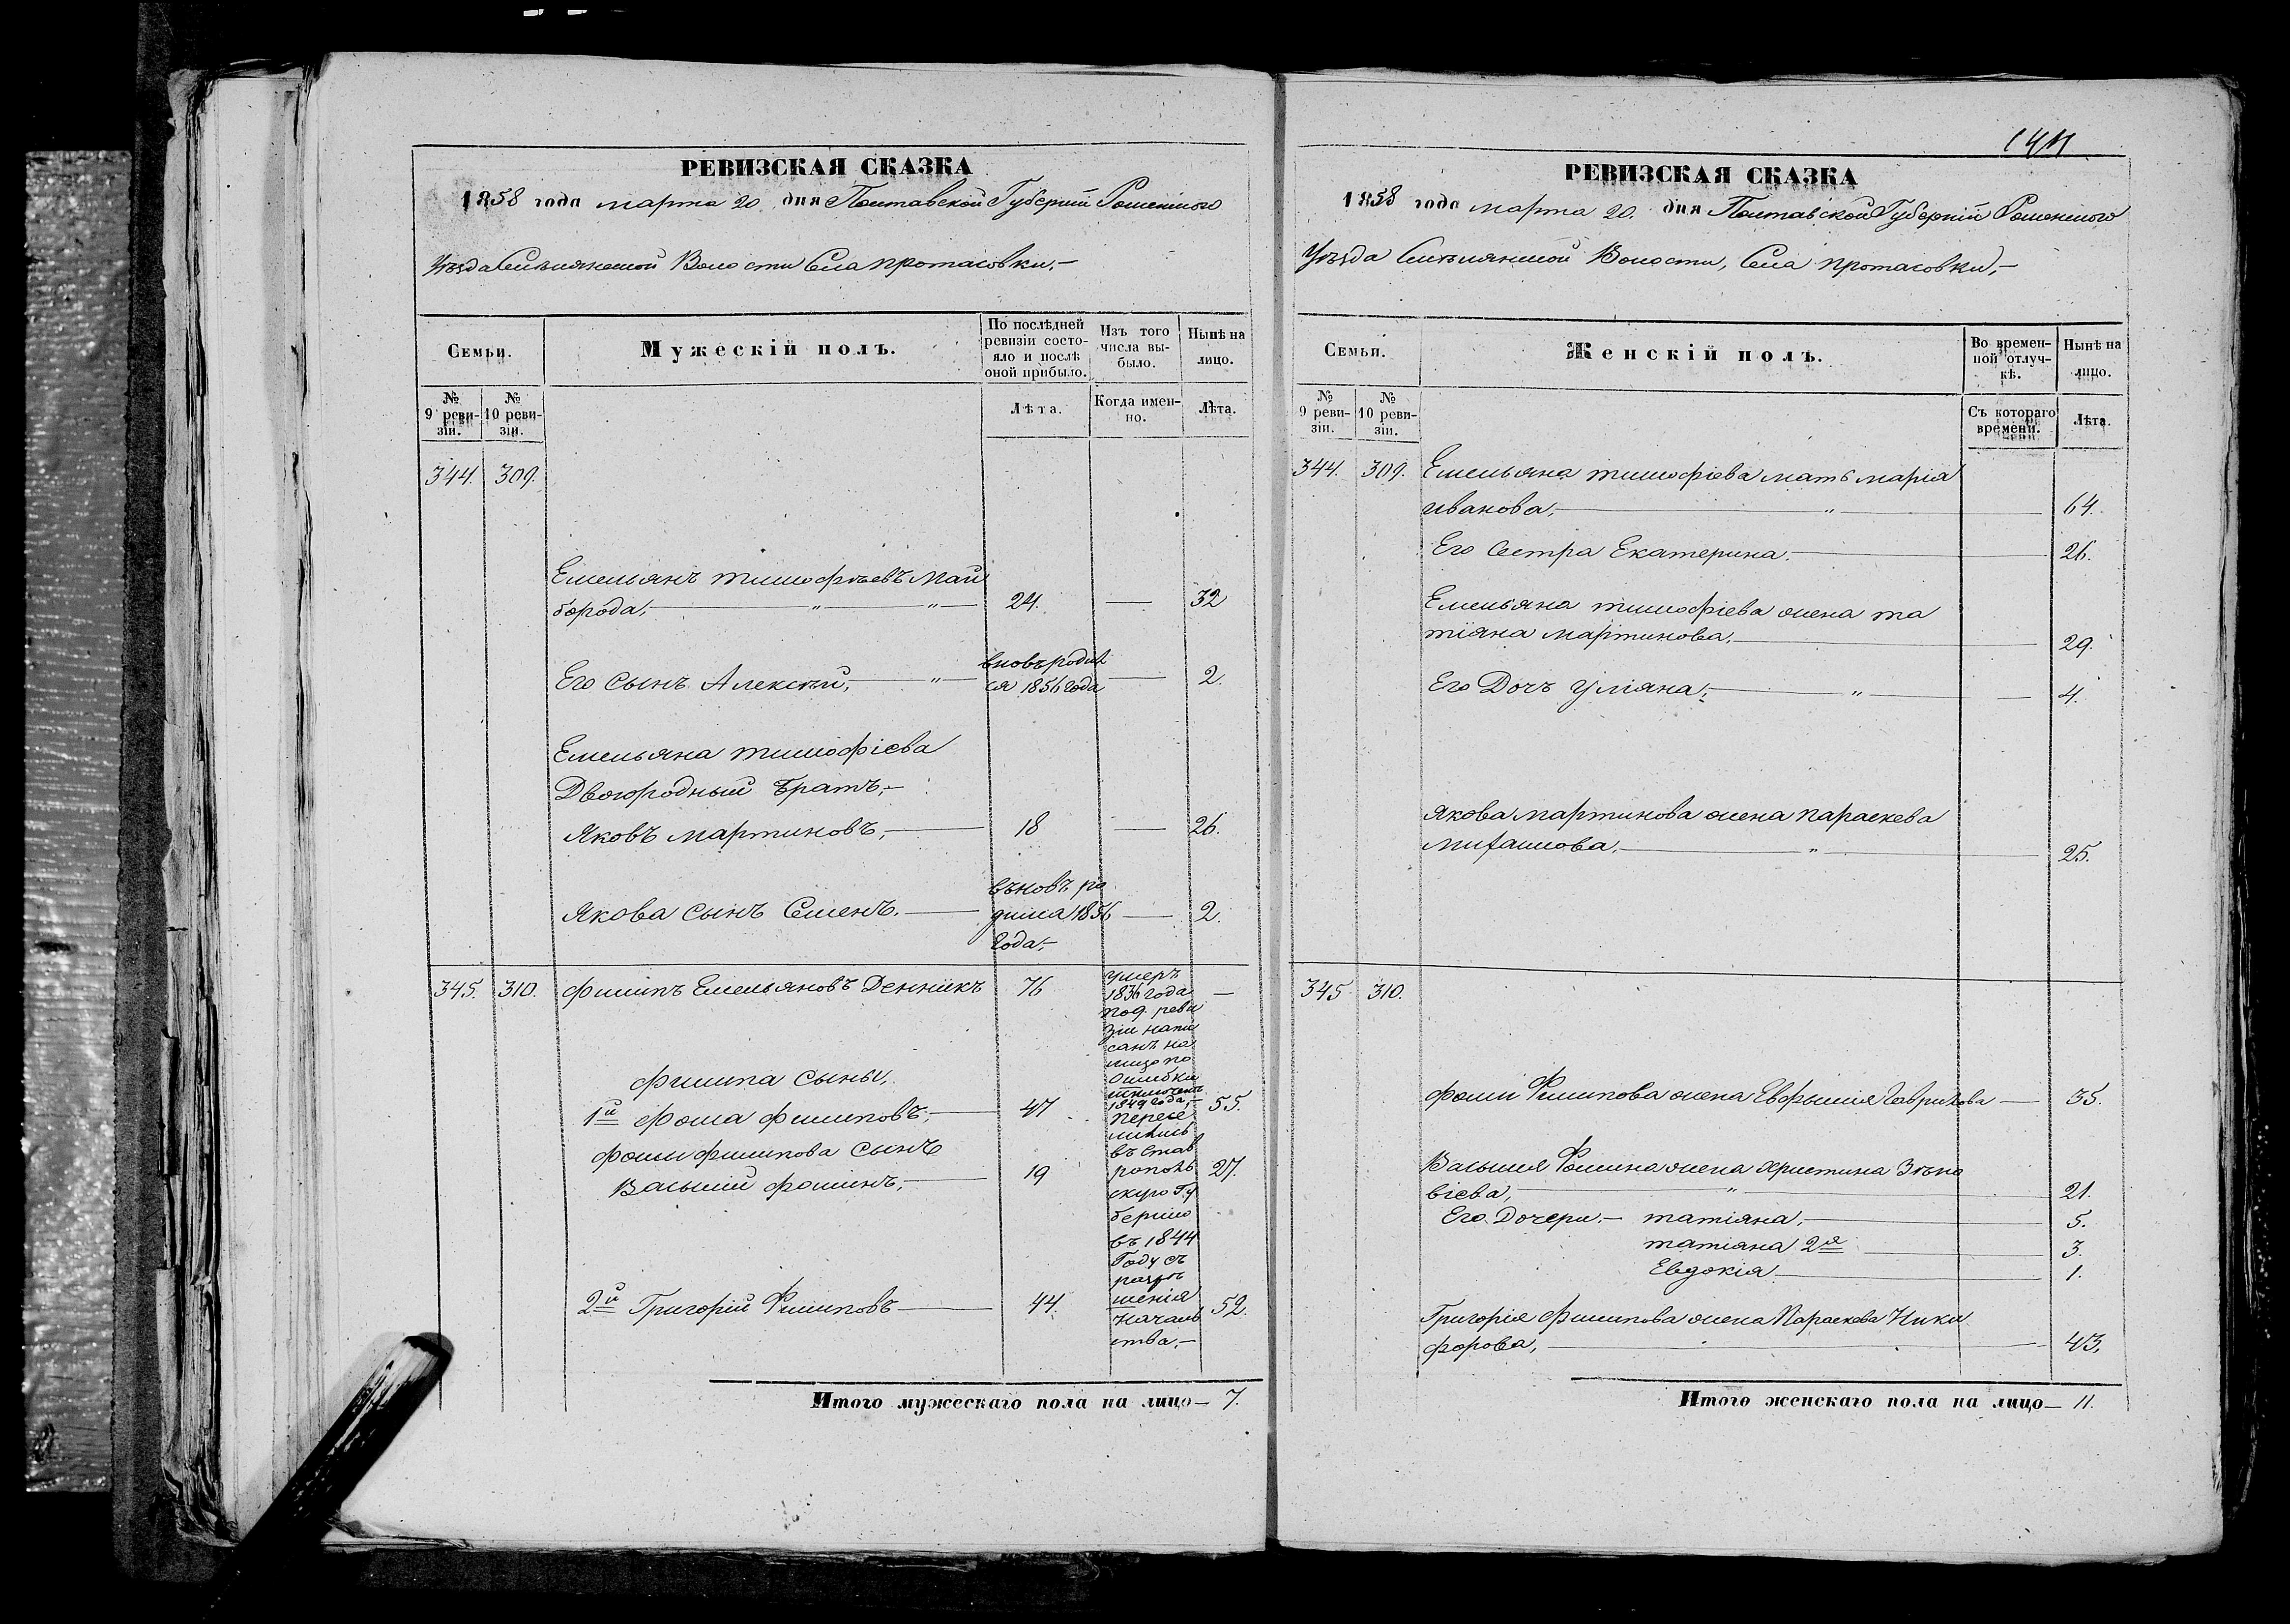 РЕВИЗСКАЯ СКАЗКА
1858 года марта 20 дня Полтавской Губерніи Роменского
Уѣзда Волости Села протасовки,—
Семьи.
Мужескій полъ.
По послѣдней ревизіи состояло и послѣ оной прибыло.
Изъ того числа выбыло.
Нынѣ на лицо.
№ 9 ревизіи.
№ 10 ревизіи.
Лѣта.
Когда именно.
Лѣта.
344. 309.
Емельянъ тимофѣевъ Май
борода, — " — " — 24. — 32
Его сынъ Алексѣй, — " — вновь родил
ся 1856 года — 2.
Емельяна тимофіева
Двоюродный братъ,—
Яковъ мартиновъ, — 18 — 26.
Якова сынъ Семенъ. — вѣновь ро
дился 1856 — 2.
года,—
345. 310. Филипъ Емельяновъ Денникъ 76 умеръ
1836 года —
по 9. реви
зіи напи
санъ на
лицо по
ошибки
исключенъ
1849 года,—
Филипа сыны,
1й Фома Филиповъ, — 47 55.
Пересе
лились
въ Став
рополь
скую Гу
бернію
въ 1844
Году съ
разрѣ
шенія
Началь
ства,—
Фомы Филипова сынъ
Василий Фоминъ, — 19 27.
2й Григорій Филиповъ — 44. 52.
Итого мужескаго пола на лицо — 7.
РЕВИЗСКАЯ СКАЗКА
1858 года марта 20. дня Полтавской Губерніи Роменского
Уѣзда Волости, Села протасовки,—
Семьи.
Женскій полъ.
Во временной отлучкѣ.
Нынѣ на лицо.
№ 9 ревизіи.
№ 10 ревизіи.
Съ котораго времени.
Лѣта.
344. 309. Емельяна тимофіева мать марія
иванова, — " — 64.
Его Сестра Екатерина. — 26.
Емельяна тимофіева жена та
тіяна мартинова. — 29.
Его Дочъ уліяна, — " — 4.
Якова мартинова жена параскева
михайлова. — " — 25.
345 310.
Фомы Филипова жена Евфимія Гаврилова — 35.
Василия Фомина жена христина Зѣно
віева, — " — 21.
Его Дочери.— татіяна, — 5.
татіяна 2я — 3.
Евдокія — 1.
Григорія Филипова жена Параскева Ники
форова, — 43.
Итого женскаго пола на лицо — 11.